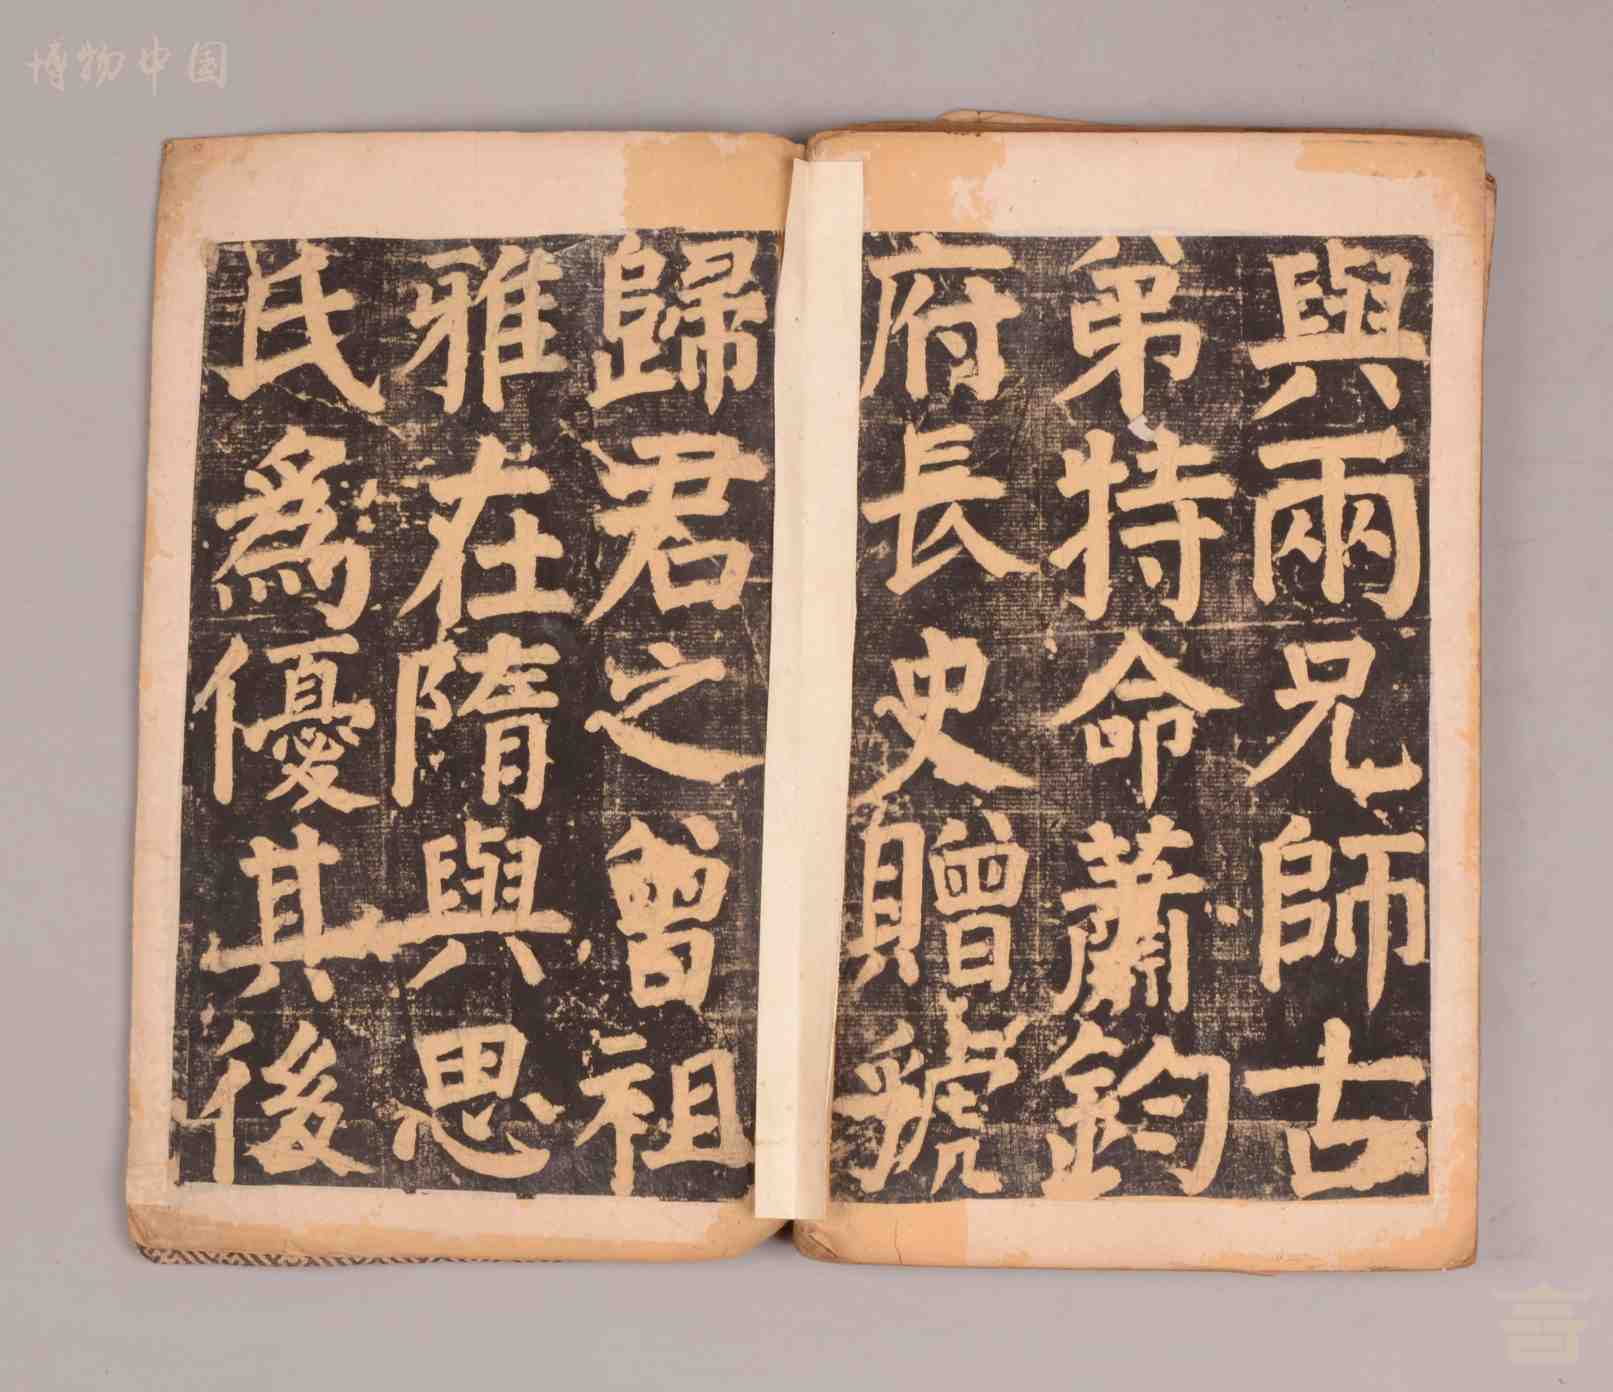 博物中国
與兩兄師古
弟特命蕭鈞
府長史贈虢
歸君之曾祖
雅在隋與思
氏為優其後